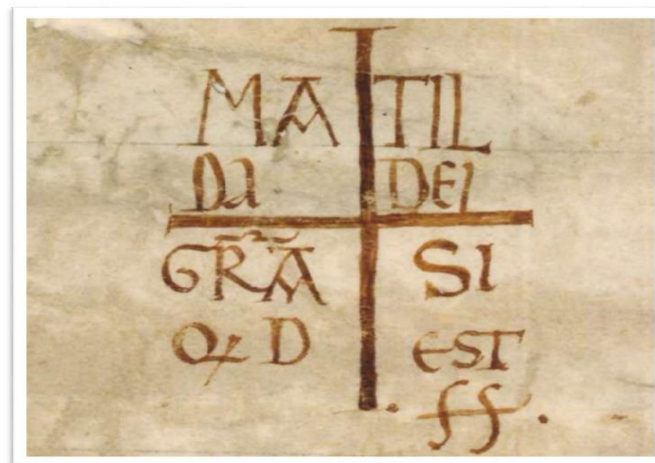 MA TIL
DA DEI
GRA SI
QD EST
ff